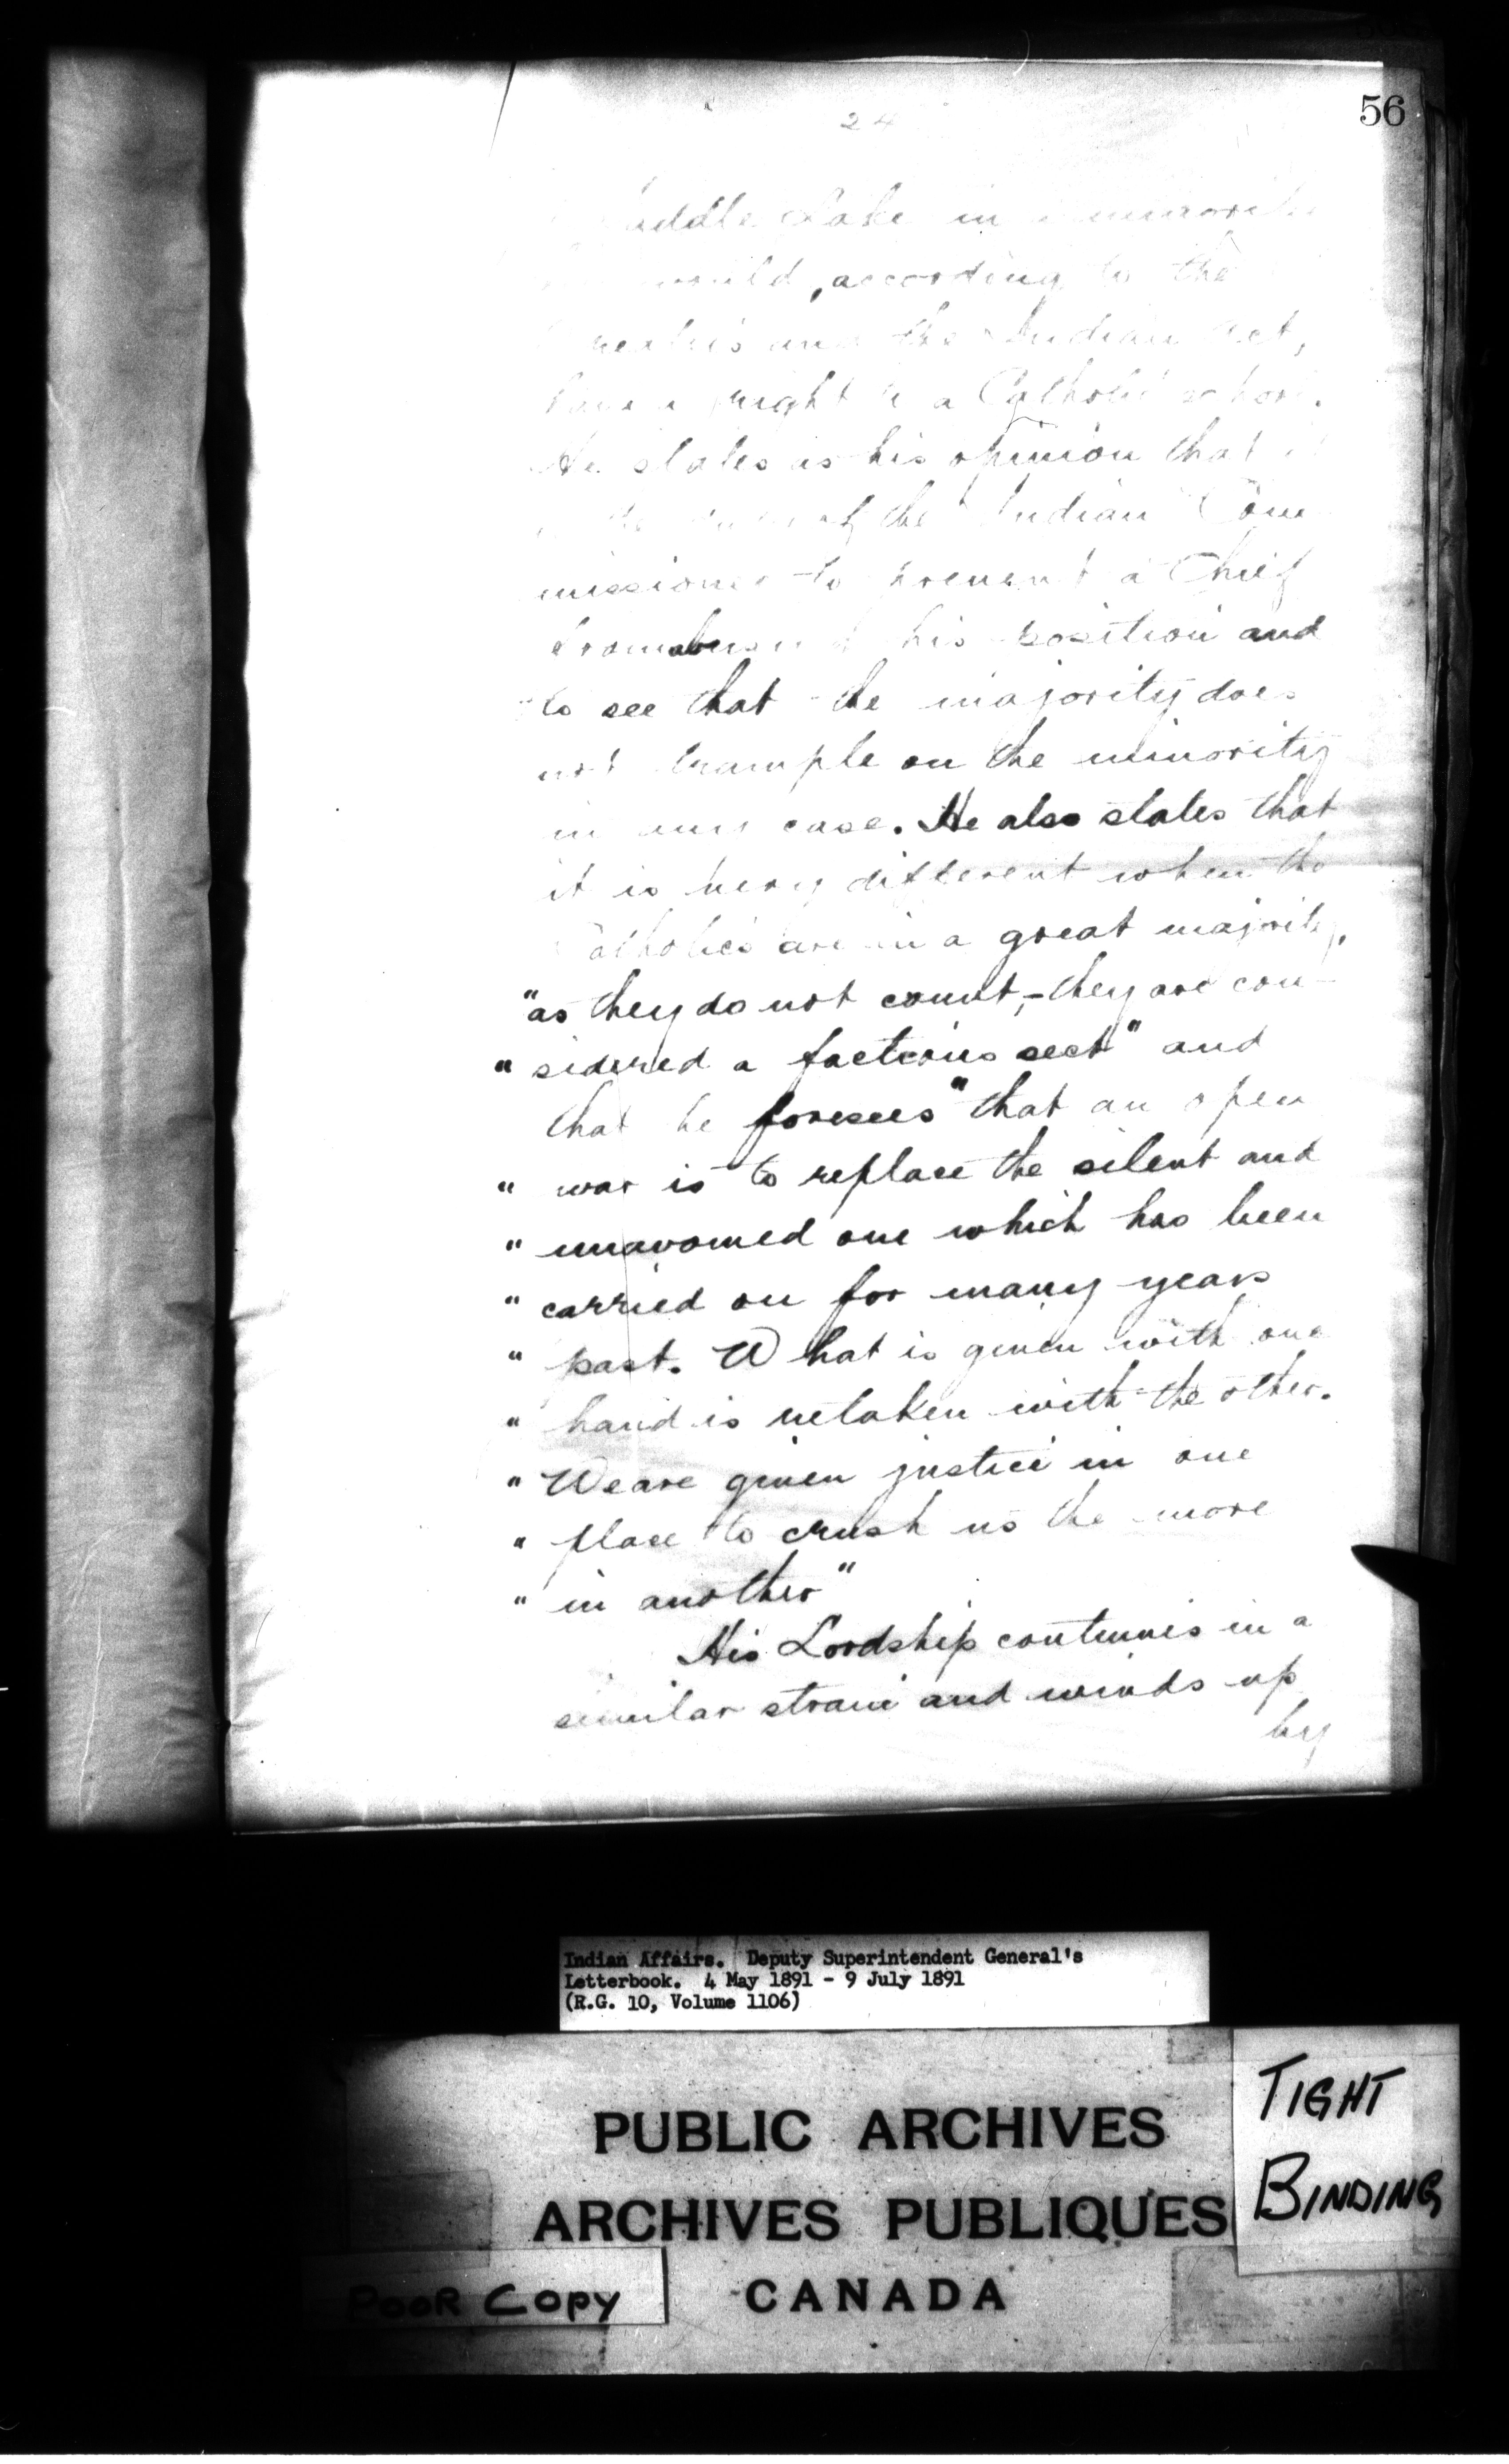 56
24
Saddle Lake in a minority
would, according to the
Treaties and the Indian Act,
have a right to a Catholic school.
He states as his opinion that it
the duty of the Indian Com
missioner to prevent a Chief
from abusing his position and
to see that the majority does
not trample on the minority
in any case. He also states that
it is very different when the
Catholics are in a great majority,
"as they do not count, - they are con-
" sidered a factious sect" and
that he foresees "that an open
" war is to replace the silent and
" unavowed one which has been
" carried on for many years
" past. What is given with one
" hand is retaken with the other.
" We are given justice in one
" place to crush us the more
" in another"
His Lordship continues in a
similar strain and winds up
by
Indian Affairs. Deputy Superintendent General's
Letterbook. 4 May 1891 - 9 July 1891
(R.G. 10, Volume 1106)
PUBLIC ARCHIVES
ARCHIVES PUBLIQUES
CANADA
TIGHT
BINDING
POOR COPY